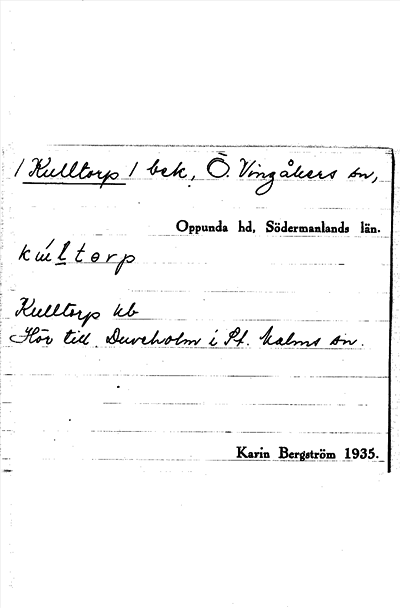 / Kulltorp / bek, Ö. Vingåkers sn,
Oppunda hd, Södermanlands län.
kúltorp
Kulltorp kb
Hör till Duveholm i St. Malms sn.
Karin Bergström 1935.